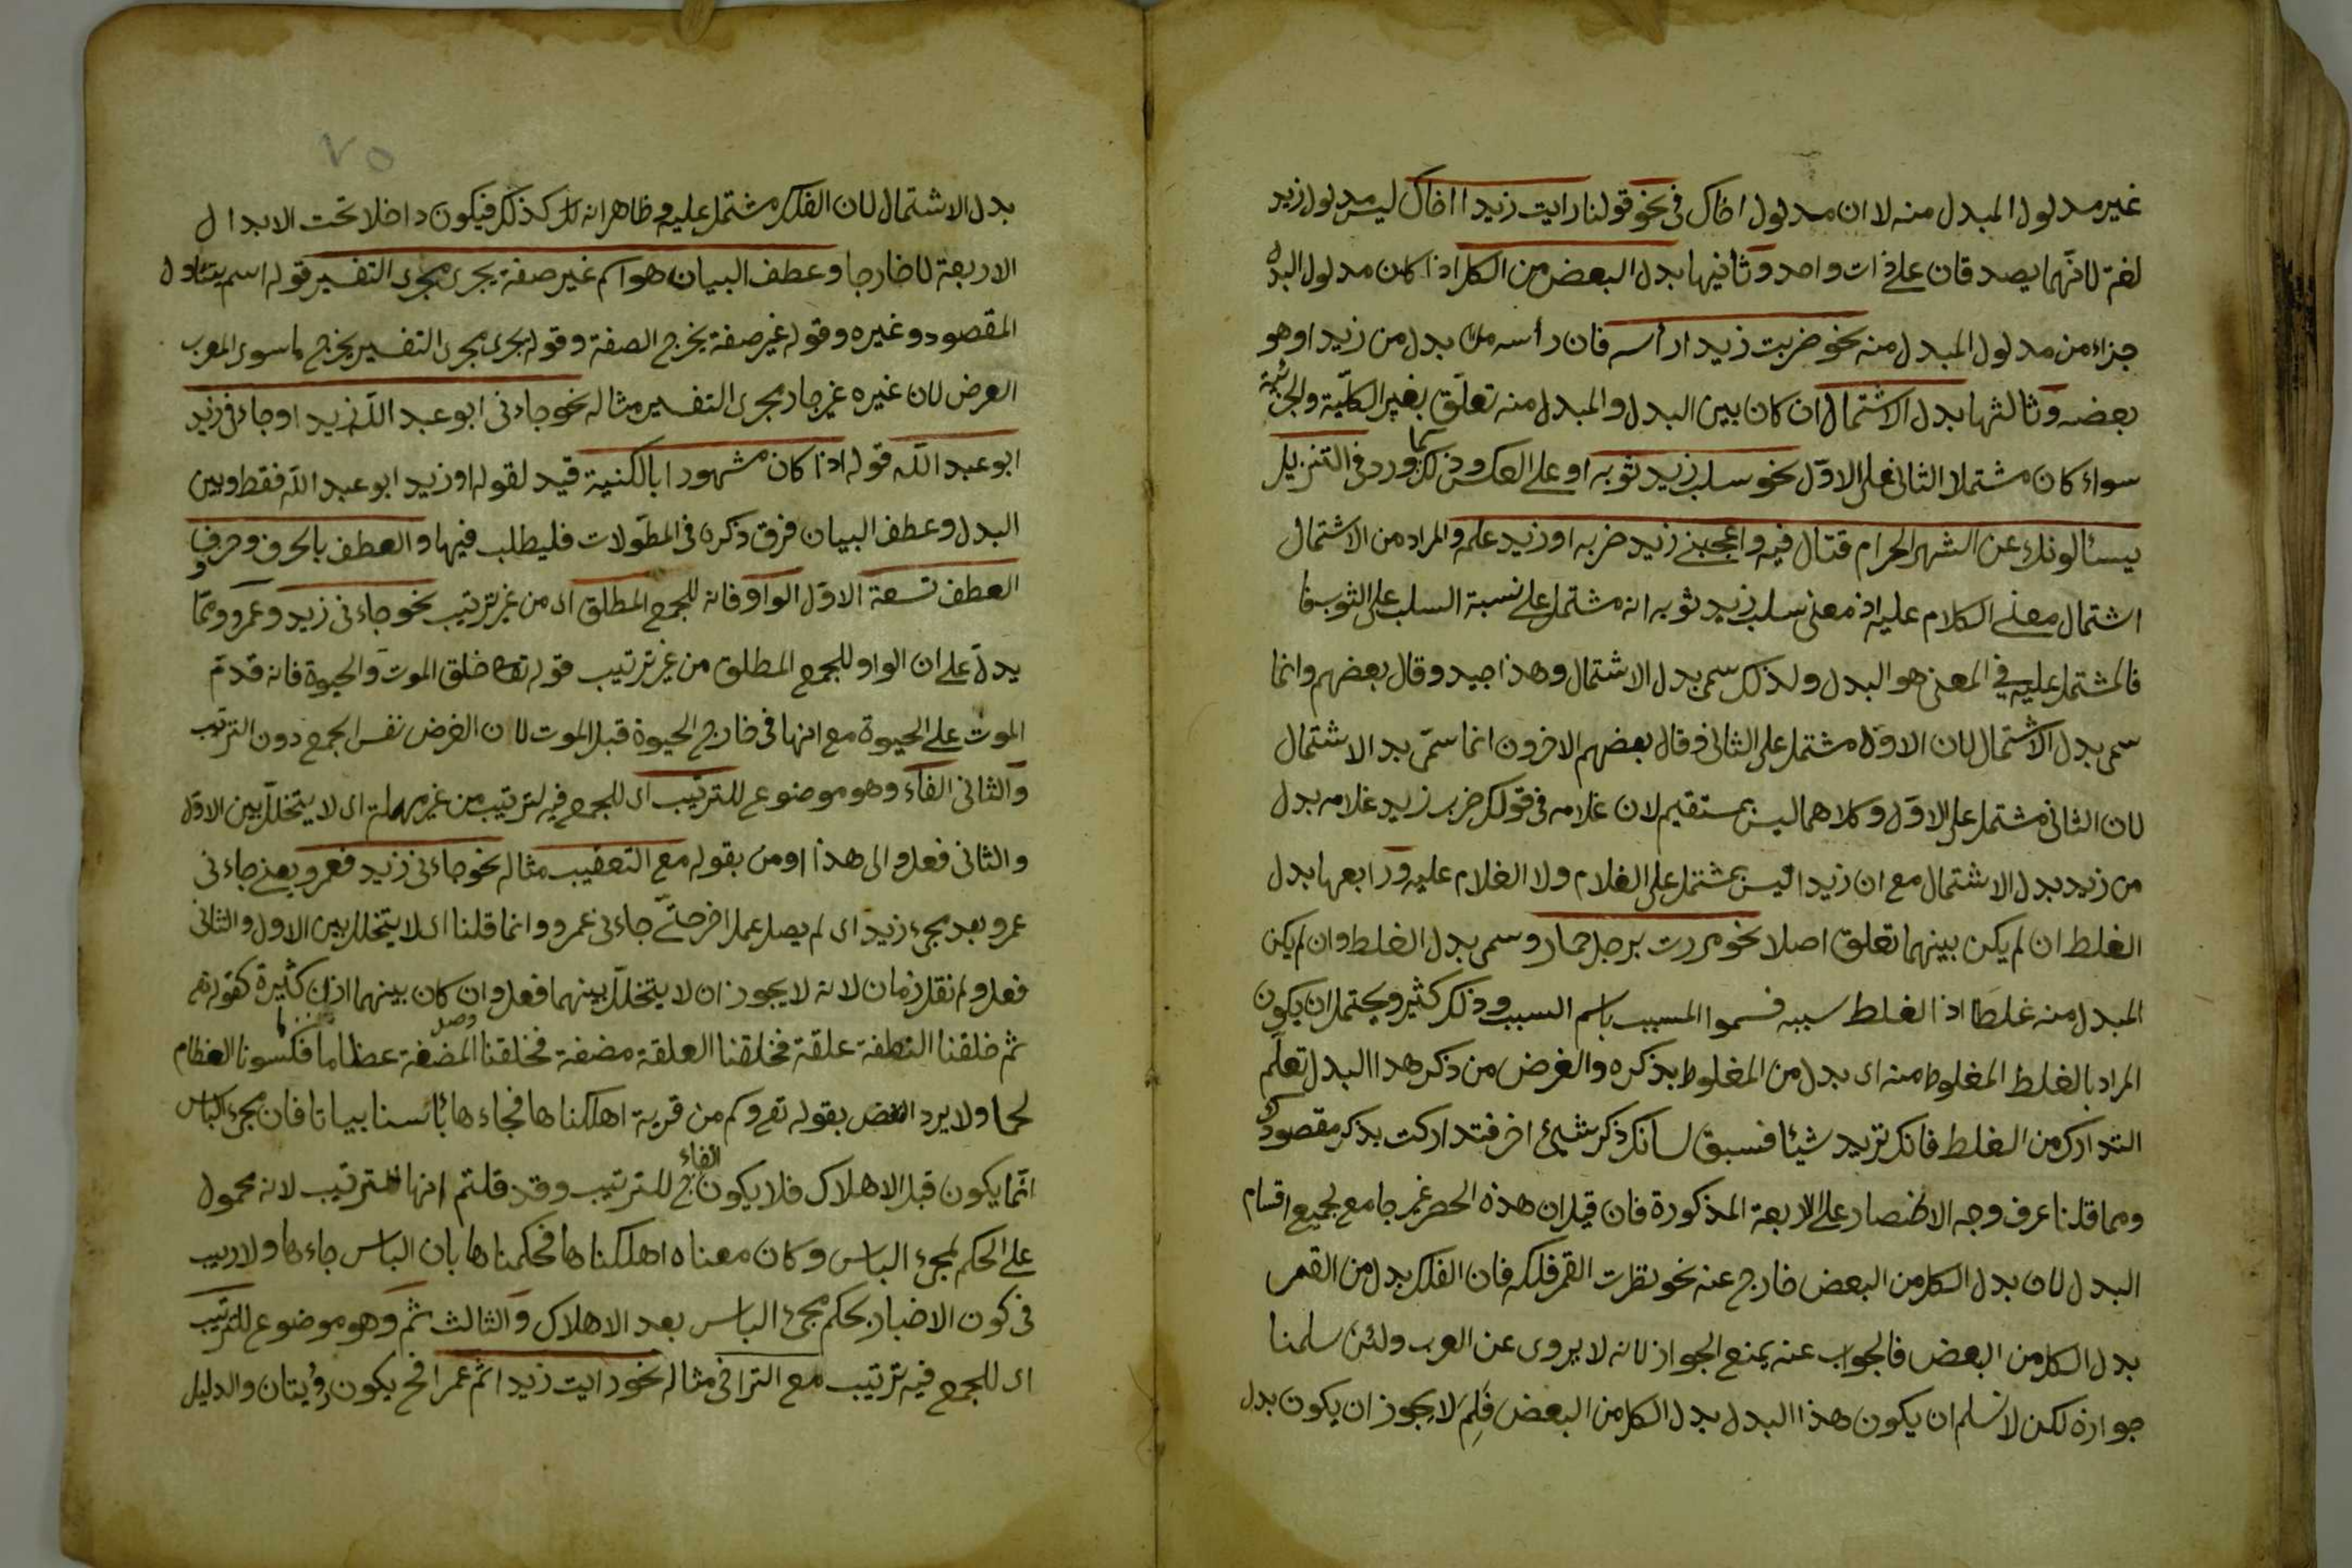 غير مدلول المبدل منه لا ان مدلول اخاك في نحو قولنا رايت زيدا اخاك ليس مدلول زيد
لغة لانهما يصدقان على ذات واحد وثانيها بدل البعض من الكل اذا كان مدلول البدل
جزاء من مدلول المبدل منه نحو ضربت زيدا رأسه فان رأسه بدل من زيد او هو
بعضه وثالثها بدل الاشتمال ان كان بين البدل والمبدل منه تعلّق بغير الكلّية والجزئية
سواء كان مشتملا الثاني على الاوّل نحو سلب زيد ثوبه او على العكس وذلك كما ورد في التنزيل
يسئالونك عن الشهر الحرام قتال فيه واعجبني زيد ضربه او زيد علمه والمراد من الاشتمال
اشتمال معنى الكلام عليه اذ معنى سلب زيد ثوبه انه مشتمل على نسبة السلب على الثوب
فالمشتمل عليه في المعنى هو البدل ولذلك سمى بدل الاشتمال وهذا جيد وقال بعضهم وانما
سمى بدل الاشتمال لان الاوّل مشتمل على الثاني وقال بعضهم الاخرون انما سمّى بد الاشتمال
لان الثاني مشتمل على الاوّل وكلاهما ليس بمستقيم لان غلامه في قولك ضرب زيد غلامه بدل
من زيد بدل الاشتمال مع ان زيدا ليس بمشتمل على الغلام ولا الغلام عليه ورابعها بدل
الغلط ان لم يكن بينهما تعلق اصلا نحو مررت برجل حمار وسمى بدل الغلط وان لم يكن
المبدل منه غلطا اذا الغلط سببه فسموا المسبب باسم السبب وذلك كثير ويحتمل ان يكون
المراد بالغلط المغلوط منه اى بدل من المغلوط بذكره والغرض من ذكر هذا البدل تعلّم
التدارك من الغلط فانك تريد شيئا فسبق لسانك ذكر شيئ اخر فتداركت بذكر مقصودك
ومما قلنا عرف وجه الانحصار على الاربعة المذكورة فان قيل ان هذه الحصر غير جامع لجميع اقسام
البدل لان بدل الكل من البعض خارج عنه نحو نظرت القمر فلكه فان الفلك بدل من القمر
بدل الكل من البعض فالجواب عنه بمنع الجواز لانه لا يروى عن العرب ولئن سلمنا
جوازه لكن لا نسلم ان يكون هذا البدل بدل الكل من البعض فَلِمَ لا يجوز ان يكون بدل
٧٥
بدل الاشتمال لان الفلك مشتمل عليه وظاهر انه كذلك فيكون داخلا تحت الابدال
الاربعة لا خارجا وعطف البيان هو اسم غير صفة يجرى مجرى التفسير قوله اسم يتناول
المقصود وغيره وقوله غير صفة يخرج الصفة وقوله يجرى مجرى التفسير يخرج ما سوى المعرب
الغرض لان غيره غير جار مجرى التفسير مثاله نحو جاءنى ابو عبد اللّه زيد او جاءنى زيد
ابو عبد اللّه قوله اذا كان مشهورا بالكنية قيد لقوله او زيد ابو عبد اللّه فقط وبين
البدل وعطف البيان فرق ذكره في المطوّلات فليطلب فيها والعطف بالحرف وحروف
العطف تسعة الاوّل الواو فانه للجمع المطلق اى من غير ترتيب نحو جاءنى زيد وعمرو وممّا
يدلّ على ان الواو للجمع المطلق من غير ترتيب قوله تعالى خلق الموت والحيوة فانه قدّم
الموت على الحيوة مع انها في خارج الحيوة قبل الموت لان الغرض نفس الجمع دون الترتيب
والثانى الفاء وهو موضوع للترتيب اى للجمع فيه ترتيب من غير مهملة اى لا يتخلّل بين الاوّل
والثانى فعل والى هذا اومن بقوله مع التعقيب مثاله نحو جاءنى زيد فعمرو يعنى جاءنى
عمرو بعد مجئ زيد اى لم يصل عمل اخر حتّى جاءنى عمرو وانما قلنا اى لا يتخلل بين الاول والثانى
فعل ولم نقل زمان لانه لا يجوز ان لا يتخلّل بينهما فعل وان كان بينهما كثيرة كقوله تعـ
ثم خلقنا النطفة علقة فخلقنا العلقة مضغة فخلقنا المضغة عظاما فكسونا العظام
لحما ولا يرد النقض بقوله تعـ وكم من قرية اهلكناها فجاءها بأسنا بياتا فان مجئ الباس
انّما يكون قبل الاهلاك فلا يكون الفاء ح للترتيب وقد قلتم انها للترتيب لانه محمول
على الحكم لمجئ الباس وكان معناه اهلكناها فحكمناها بان الباس جاءها ولا ريب
في كون الاخبار بحكم مجئ الباس بعد الاهلاك والثالث ثم وهو موضوع للترتيب
اى للجمع فيه ترتيب مع التراخى مثاله نحو رايت زيدا ثم عمرا فح يكون رؤيتان والدليل